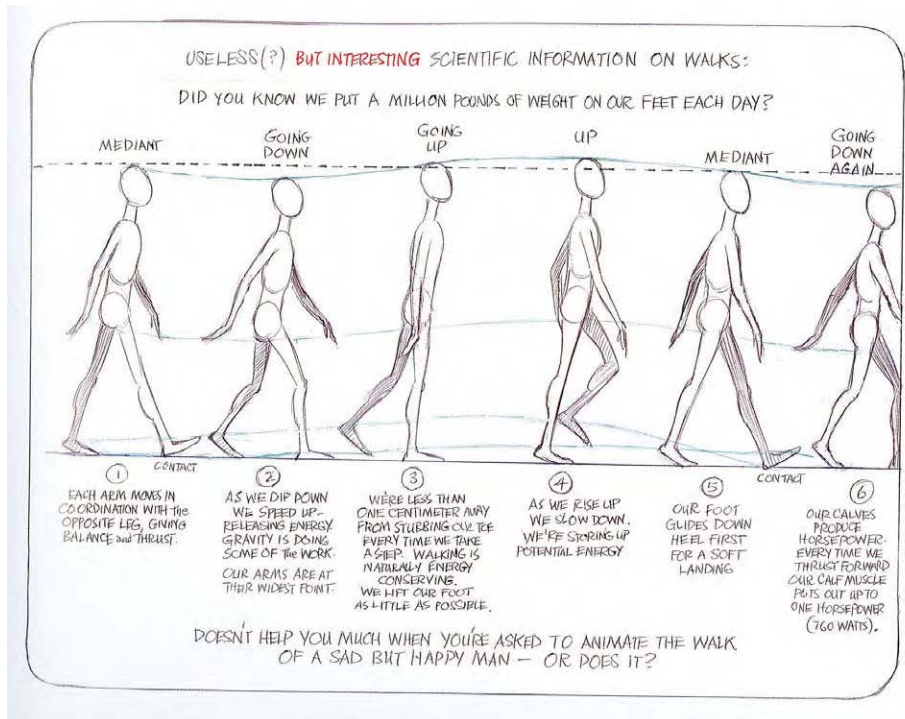 USELESS(?) BUT INTERESTING SCIENTIFIC INFORMATION ON WALKS:
DID YOU KNOW WE PUT A MILLION POUNDS OF WEIGHT ON OUR FEET EACH DAY?
MEDIANT
GOING
DOWN
GOING
UP
UP
MEDIANT
GOING
DOWN
AGAIN
CONTACT
CONTACT
1
EACH ARM MOVES IN
COORDINATION WITH the
OPPOSITE LEG, GIVING
BALANCE and THRUST.
2
AS WE DIP DOWN
WE SPEED UP-
RELEASING ENERGY.
GRAVITY IS DOING
SOME OF the WORK.
OUR ARMS ARE AT
THEIR WIDEST POINT.
3
WE'RE LESS THAN
ONE CENTIMETER AWAY
FROM STUBBING OUR TOE
EVERY TIME WE TAKE
A STEP. WALKING IS
NATURALLY ENERGY
CONSERVING.
WE LIFT OUR FOOT
AS LITTLE AS POSSIBLE.
4
AS WE RISE UP
WE SLOW DOWN.
WE'RE STORING UP
POTENTIAL ENERGY
5
OUR FOOT
GLIDES DOWN
HEEL FIRST
FOR A SOFT
LANDING
6
OUR CALVES
PRODUCE
HORSEPOWER.
EVERY TIME WE
THRUST FORWARD
OUR CALF MUSCLE
PUTS OUT UP TO
ONE HORSEPOWER
(760 WATTS).
DOESN'T HELP YOU MUCH WHEN YOU'RE ASKED TO ANIMATE THE WALK
OF A SAD BUT HAPPY MAN — OR DOES IT?